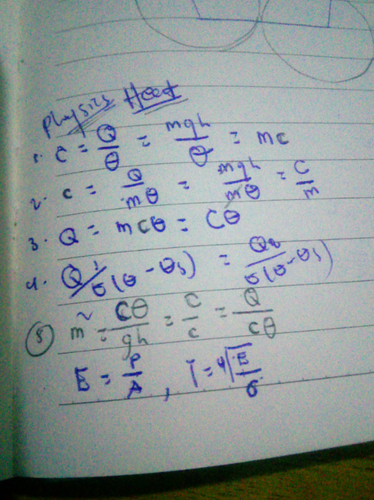 Physics Heat
1. C = Q/θ = mgh/θ = mc
2. c = Q/mθ = mgh/mθ = C/m
3. Q = mcθ = Cθ
4. Q/σ(θ - θs) = Q/σ(θ - θs)
5 m = Cθ/gh = C/c = Q/cθ
E = P/A , T = 4√E/σ